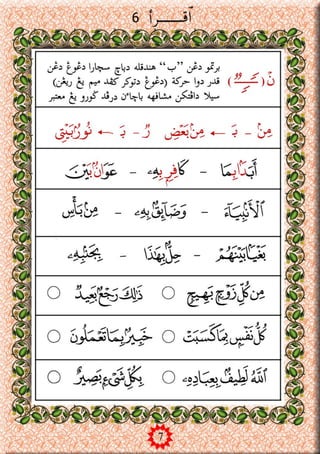 ٱقـــرأ 6
نْ (ـًـٍـٌ) برتمو دڠن ”ب“ هندقله دباچ سچارا دڠوڠ دڠن
قدر دوا حركة (دڠوڠ دتوكر كڤد ميم يڠ ريڠن)
سيلا داڤتكن مشافهه باچاءن درڤد ݢورو يڠ معتبر
مِنْ - بَـ ← مِنۢ بَعْضِ ـٌ - بَـ ← نُورٌۢ بَيِّنٌ
أَبَدَۢا بِمَا - كَافِرِۭ بِهِۦ - عَوَانُۢ بَيْنَ
ٱلْأَنۢبِيَآءَ - وَضَآئِقُۢ بِهِۦ - مِنۢ بَأْسِ
بَغْيَۢا بَيْنَهُمْ - حِلُّۢ بِهَٰذَا - بِجَنۢبِهِۦ
مِن كُلِّ زَوْجِۭ بَهِيجٍ ○ ذَٰلِكَ رَجْعُۢ بَعِيدٌ ○
كُلُّ نَفْسِۭ بِمَا كَسَبَتْ ○ خَبِيرُۢ بِمَا تَعْمَلُونَ ○
ٱللَّهُ لَطِيفُۢ بِعِبَادِهِۦ ○ بِكُلِّ شَىْءِۭ بَصِيرٌ ○
7